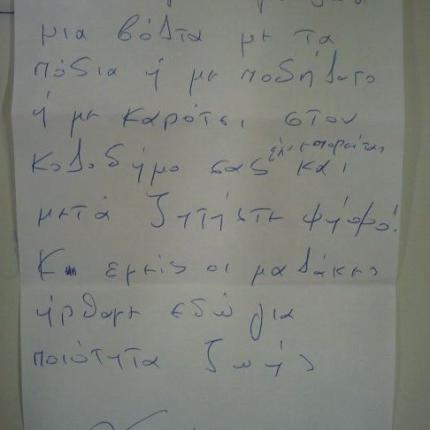 μια βόλτα με τα
πόδια ή με ποδήλατο
ή με καρότσι στον
κολοδήμο σας εάν μπορείται και
μετά ζητήστε ψήφο!
Κ εμείς οι μαλάκες
ήρθαμε εδώ για
ποιότητα ζωής